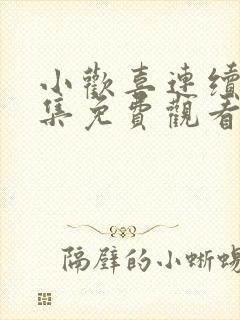 小歡喜連續
集免費觀看
隔壁的小蜥蜴